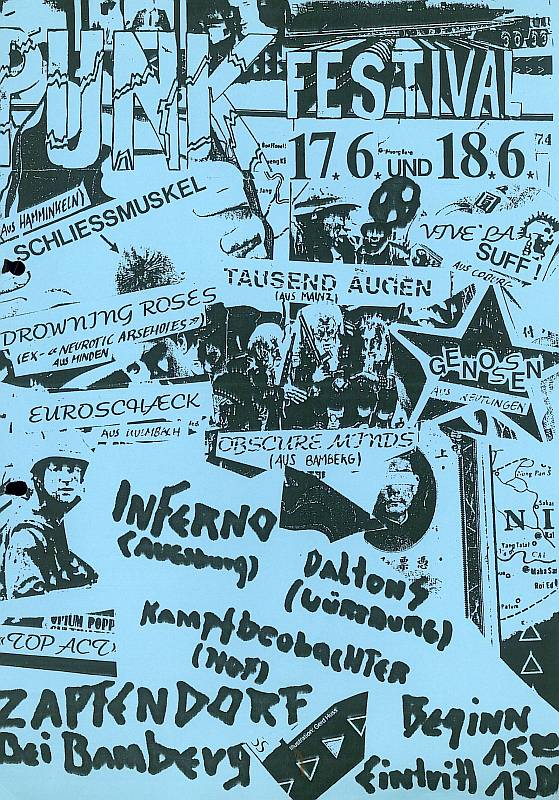 PUNK FESTIVAL
17.6. UND 18.6.
(AUS HAMMINKELN)
SCHLIESSMUSKEL
VIVE LA
SUFF!
AUS COBURG
TAUSEND AUGEN
(AUS MAINZ)
DROWNING ROSES
(EX-«NEUROTIC ARSEHOLES»)
AUS MINDEN
GENOSSEN
AUS REUTLINGEN
EUROSCHÆCK
AUS KULMBACH
OBSCURE MINDS
(AUS BAMBERG)
INFERNO
(AUGSBURG)
DALTONS
(WÜRZBURG)
KAMPFBEOBACHTER
(HOF)
«TOP ACT»
ZAPFENDORF
BEI BAMBERG
BEGINN
15 00
EINTRITT 12 DM